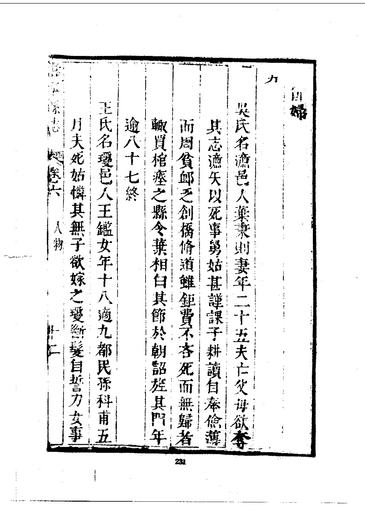 節婦
吳氏名澹邑人葉秉則妻年二十五夫亡父母欲奪
其志澹矢以死事舅姑甚謹課子耕讀自奉儉薄
而周貧卹乏創橋脩道雖鉅費不吝死而無歸者
輒買棺瘞之縣令葉相白其節於朝詔旌其門年
逾八十七終
王氏名瓊邑人王鑑女年十八適九都民孫科甫五
月夫死姑憐其無子欲嫁之瓊斷髮自誓力女事
縣志
卷六
人物
232